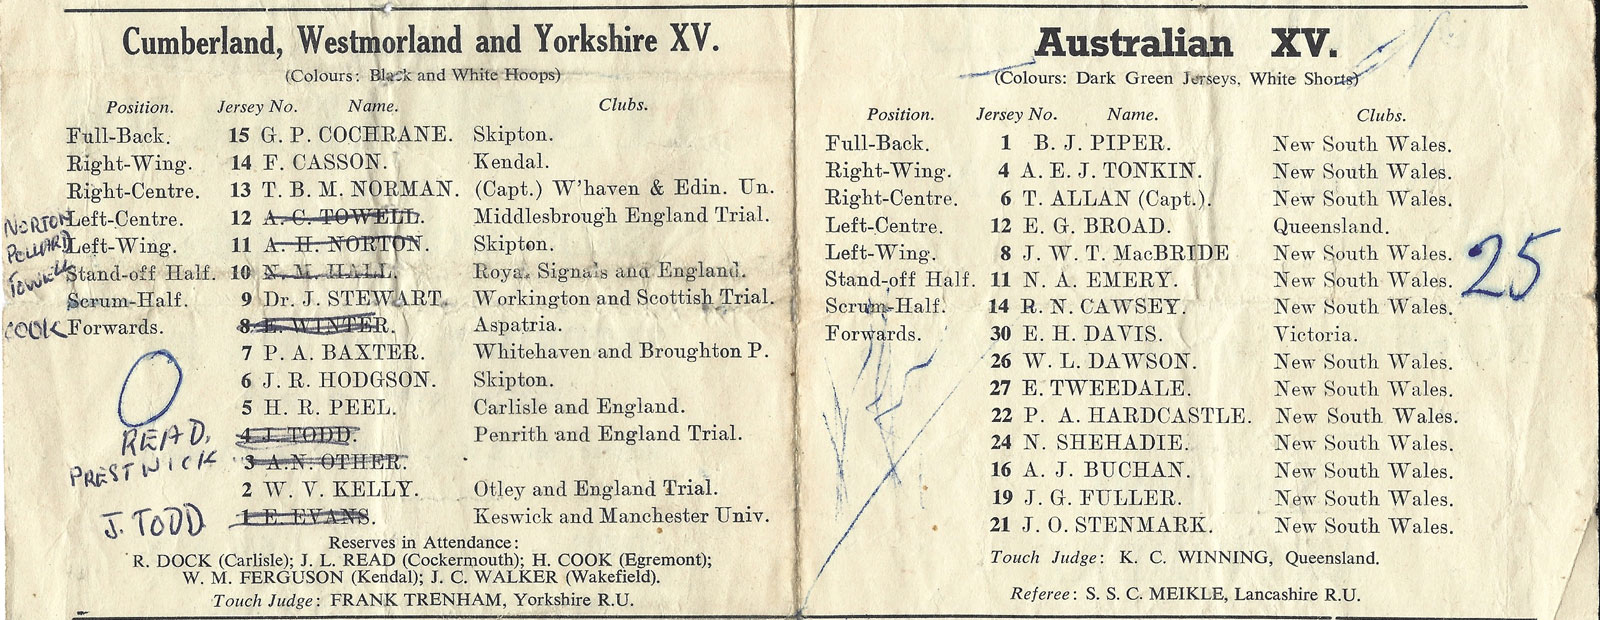 Cumberland, Westmorland and Yorkshire XV.
(Colours: Black and White Hoops)
Position. Jersey No. Name. Clubs.
Full-Back. 15 G. P. COCHRANE. Skipton.
Right-Wing. 14 F. CASSON. Kendal.
Right-Centre. 13 T. B. M. NORMAN. (Capt.) W'haven & Edin. Un.
NORTON Left-Centre. 12 A. C. TOWELL. Middlesbrough England Trial.
POLLARD Left-Wing. 11 A. H. NORTON. Skipton.
TOWELL Stand-off Half. 10 N. M. HALL. Royal Signals and England.
Scrum-Half. 9 Dr. J. STEWART. Workington and Scottish Trial.
COOK Forwards. 8 E. WINTER. Aspatria.
7 P. A. BAXTER. Whitehaven and Broughton P.
0
6 J. R. HODGSON. Skipton.
5 H. R. PEEL. Carlisle and England.
READ. 4 J. TODD. Penrith and England Trial.
PRESTWICK 3 A.N. OTHER.
2 W. V. KELLY. Otley and England Trial.
J. TODD 1 E. EVANS. Keswick and Manchester Univ.
Reserves in Attendance:
R. DOCK (Carlisle); J. L. READ (Cockermouth); H. COOK (Egremont);
W. M. FERGUSON (Kendal); J. C. WALKER (Wakefield).
Touch Judge: FRANK TRENHAM, Yorkshire R.U.
Australian XV.
(Colours: Dark Green Jerseys, White Shorts)
Position. Jersey No. Name. Clubs.
Full-Back. 1 B. J. PIPER. New South Wales.
Right-Wing. 4 A. E. J. TONKIN. New South Wales.
Right-Centre. 6 T. ALLAN (Capt.). New South Wales.
Left-Centre. 12 E. G. BROAD. Queensland.
Left-Wing. 8 J. W. T. MacBRIDE New South Wales.
25
Stand-off Half. 11 N. A. EMERY. New South Wales.
Scrum-Half. 14 R. N. CAWSEY. New South Wales.
Forwards. 30 E. H. DAVIS. Victoria.
26 W. L. DAWSON. New South Wales.
27 E. TWEEDALE. New South Wales.
22 P. A. HARDCASTLE. New South Wales.
24 N. SHEHADIE. New South Wales.
16 A. J. BUCHAN. New South Wales.
19 J. G. FULLER. New South Wales.
21 J. O. STENMARK. New South Wales.
Touch Judge: K. C. WINNING, Queensland.
Referee: S. S. C. MEIKLE, Lancashire R.U.